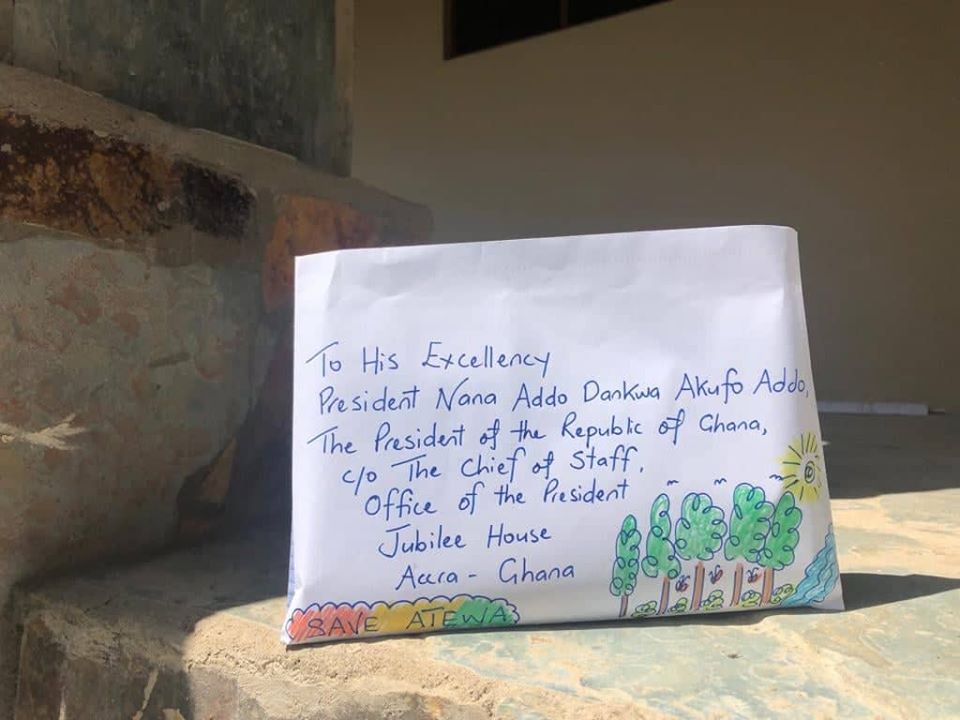 To His Excellency
President Nana Addo Dankwa Akufo Addo,
The President of the Republic of Ghana,
c/o The Chief of Staff,
Office of the President
Jubilee House
Accra - Ghana
SAVE ATEWA